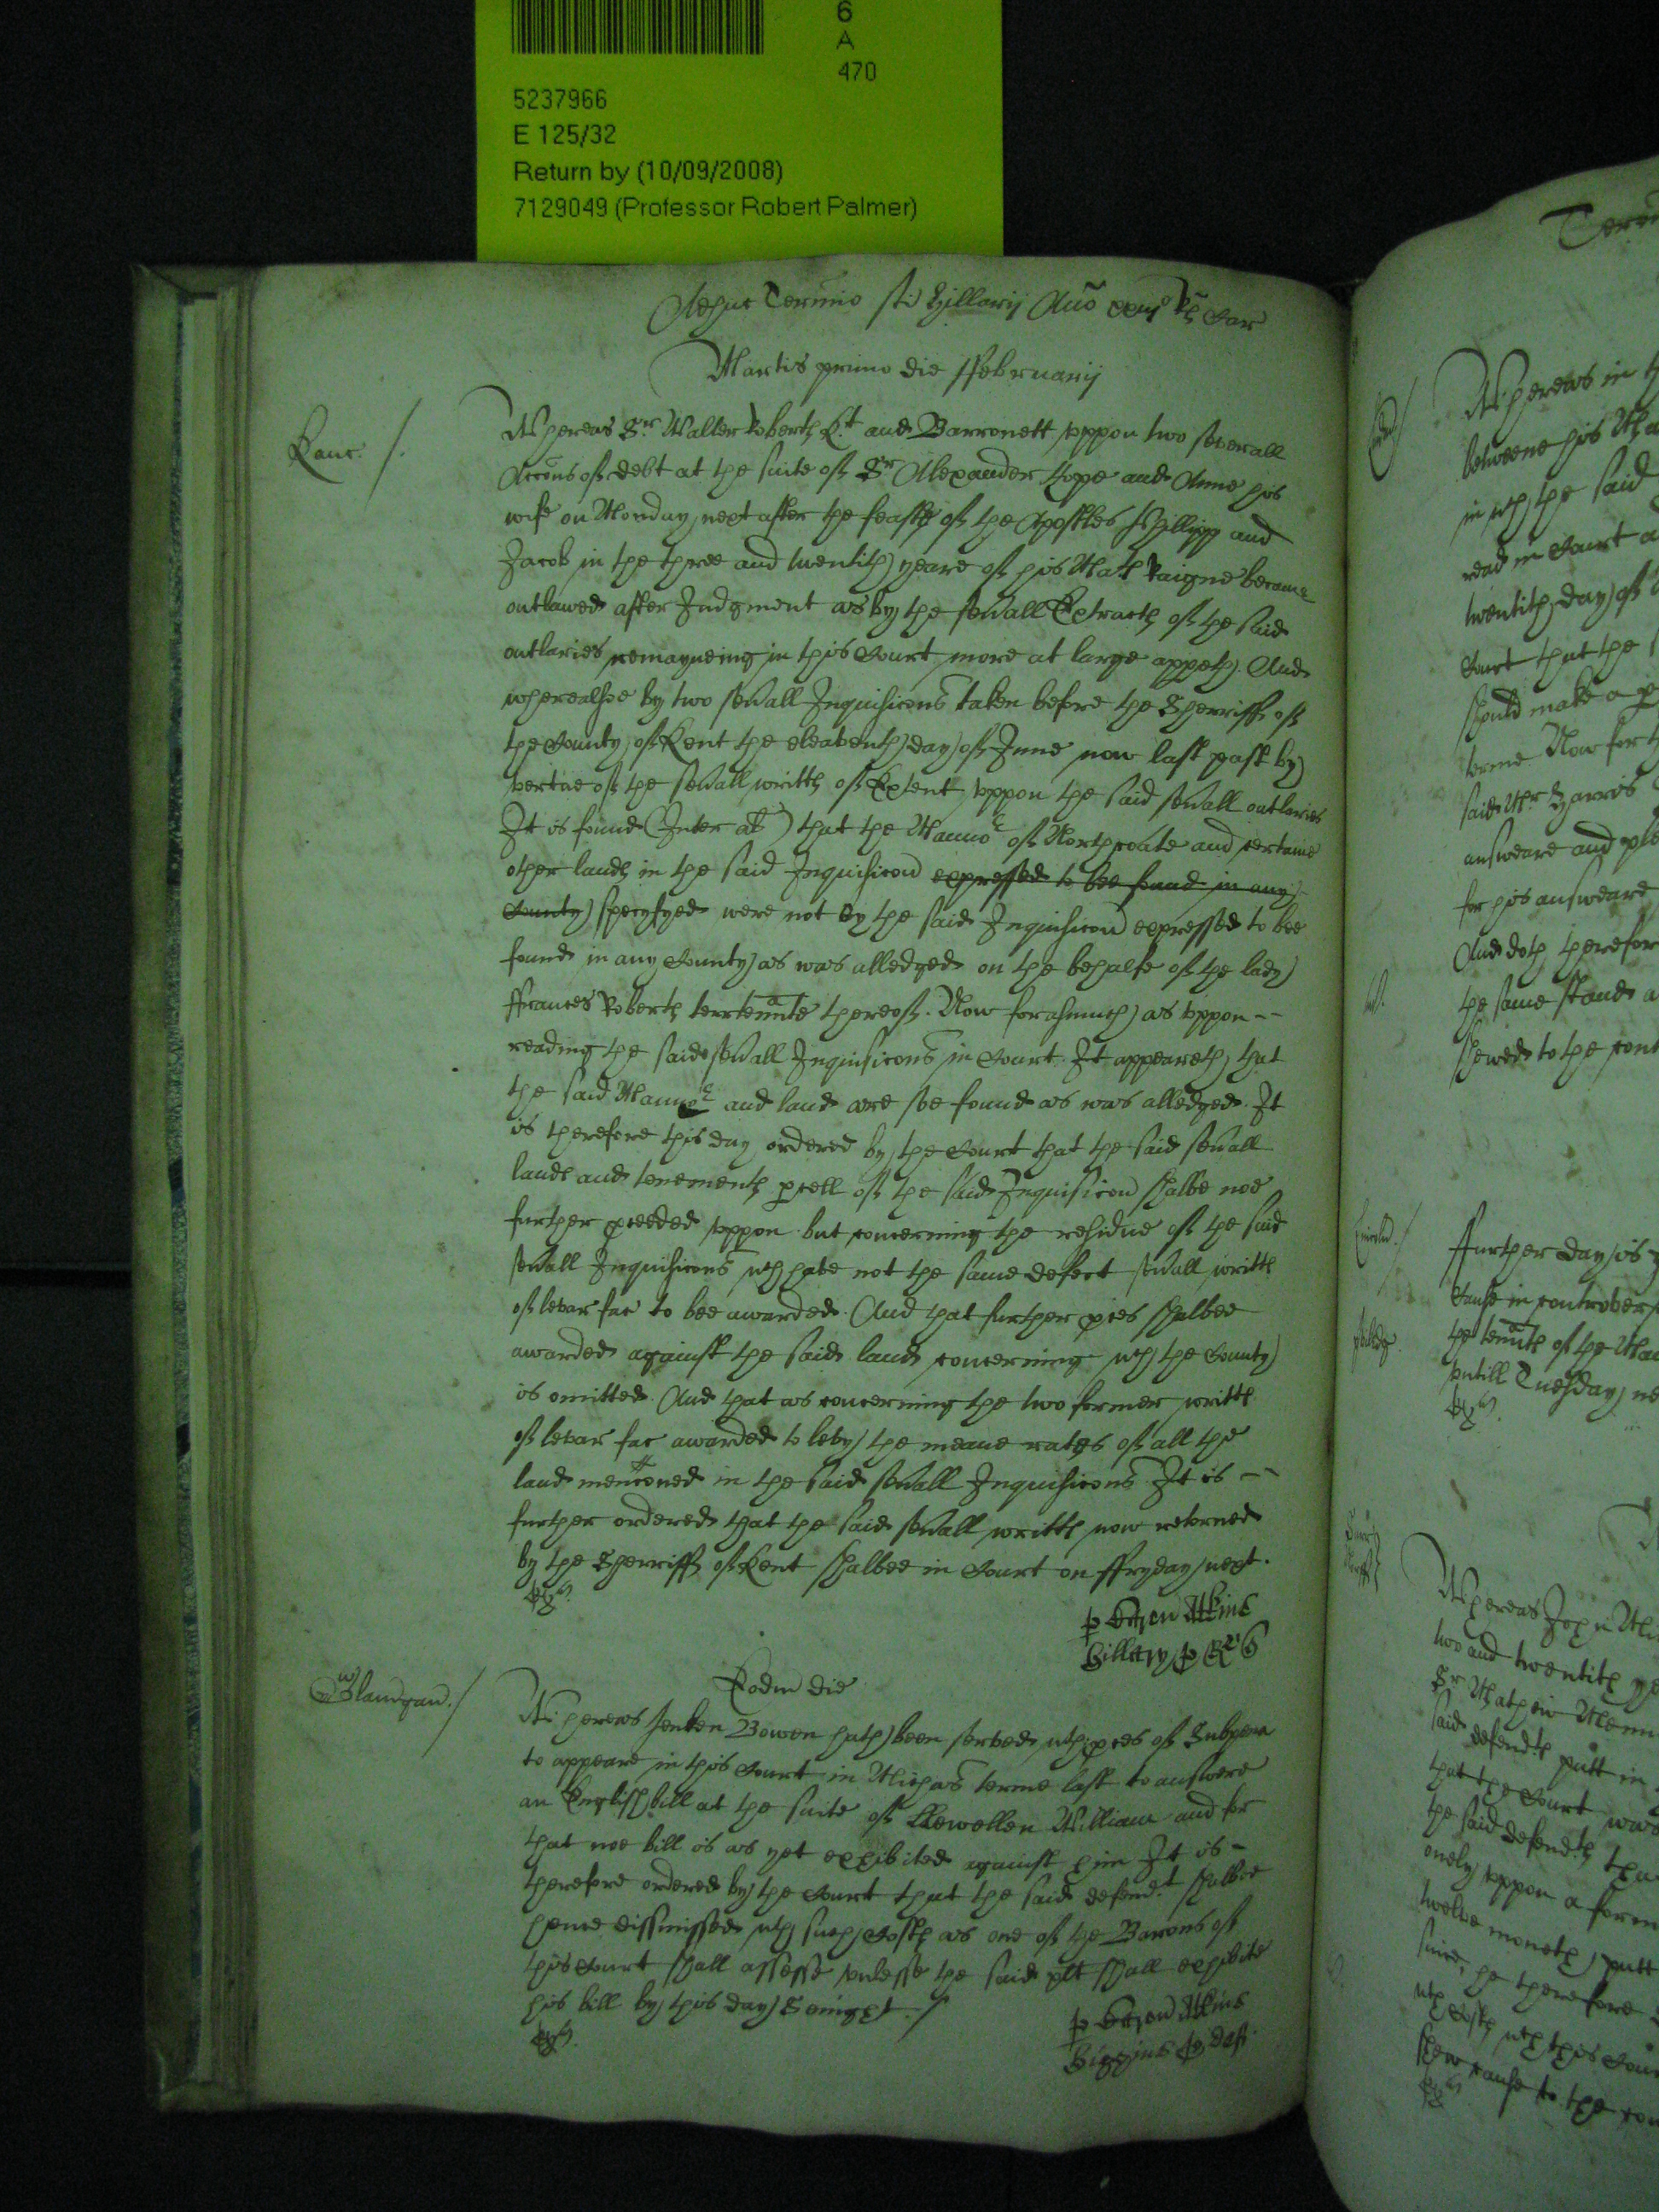 6
A
470
5237966
E 125/32
Return by (10/09/2008)
7129049 (Professor Robert Palmer)
Adhuc Termino sci Hillarij Anno Car
Martis primo die ffebruarij
Kanc. /.
Whereas Sr. Walter Robertes Kt. and Barronett vppon two seuerall
Accons of debt at the suite of Sr Alexander Hope and Anne his
wife on Monday next after the feaste of the Apostles Phillipp and
Jacob in the three and twentith yeare of his Maties Raigne became
outlawed after Judgment as by the seuall Extractes of the said
outlaries remayneing in this Court more at large appeth. And
wherealsoe by two seuall Inquisicons taken before the Sherriffe of
the County of Kent the eleaventh day of June now last past by
vertue of the seuall writtes of Extent vppon the said seuall outlaries
It is found (Inter al) that the Mannor of Northcoate and certaine
other landes in the said Inquisicon expressed to bee found in any
County specyfyed were not by the said Inquisicon expressed to bee
found in any County as was alledged on the behalfe of the lady
ffrances Robertes terrtennte thereof. Now forasmuch as vppon --
reading the said seuall Inquisicons in Court. It appeareth that
the said Mannor and land are soe found as was alledged. It
is therefore this day ordered by the Court that the said seuall
landes and tenementes pcell of the said Inquisicon shalbe noe
further pceeded vppon but concerning the residue of the said
seuall Inquisicons wch have not the same defect seuall writtes
of levar fac to bee awarded. And that further pces shalbee
awarded against the said land concerning wch the County
is omitted. And that as concerning the two former writtes
of levar fac awarded to levy the meane rates of all the
land menconed in the said seuall Inquisicons It is --
further ordered that the said seuall writtes now retorned
by the Sherriffe of Kent shalbee in Court on ffryday next.
p Baron Atkins
Hillary p
Eodm die
Glamorgan. /
Whereas Jenken Bowen hath been served wth pces of Subpena
to appeare in this Court in Michas terme last to answere
an English bill at the suite of Llewellen William and for
that noe bill is as yet exhibited against him It is -
therefore ordered by the Court that the said defendt. shalbee
hence dissmissed wth such Costes as one of the Barons of
this Court shall assesse vnlesse the said plt shall exhibite
his bill by this day Seniyht. /
p Baron Atkins
Higgins p def.
Whereas in
betweene his Ma
in wch the said
read in Court a
twentith day of
Court that the
should make a
terme. Now for
said Mr. Harris
answeare and ple
for his answeare
And doth therefor
the same stand
shewed to the cont
ffurther day is
Cause in controver
the tennts of the Ma
vntill Tuesday ne
Whereas John
two and twentith ye
Sr Mathew
said defendtes putt in
that the Court was
the said defendtes
onely vppon a form
twelve monethes putt
since, he therefore
wth Costes wch this Cou
shew cause to the con